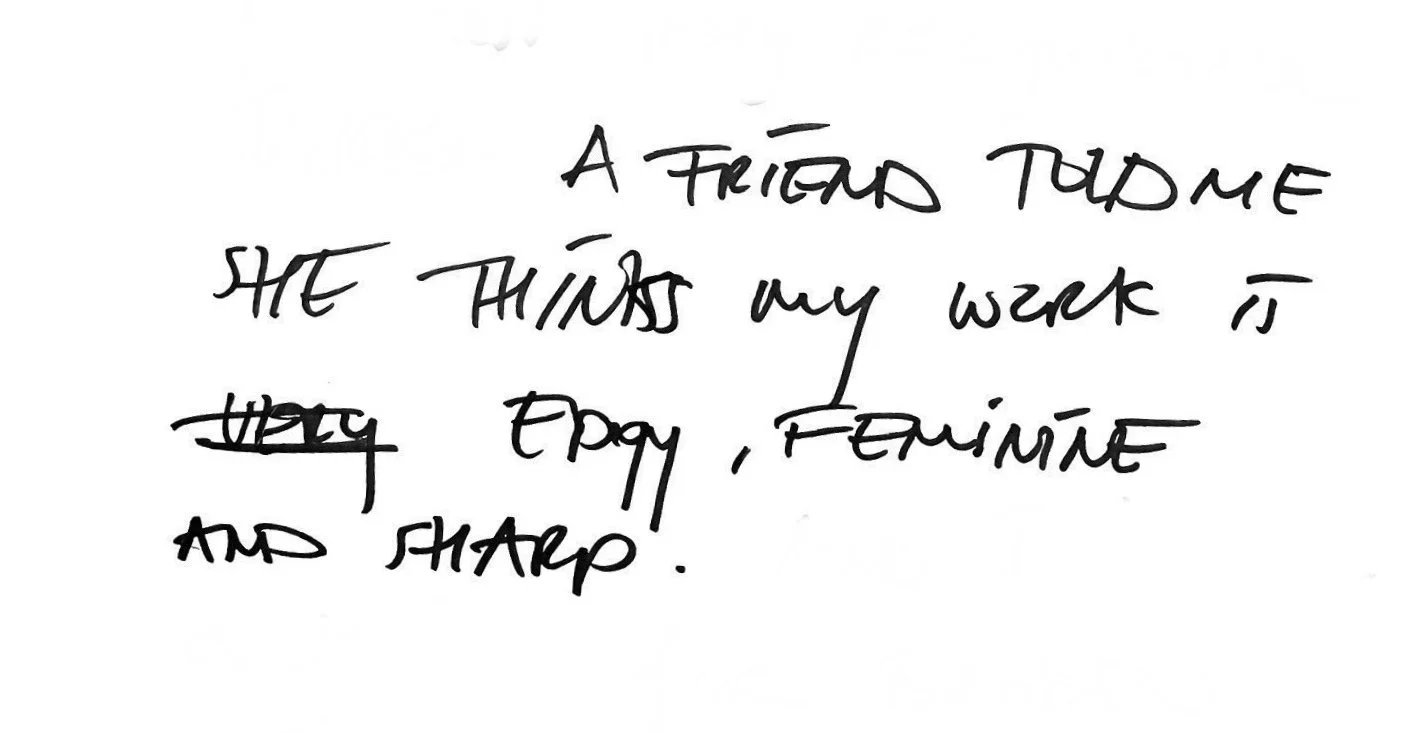 A FRIEND TOLD ME
SHE THINKS my WORK IS
EDgy, FEMININE
AND SHARP.